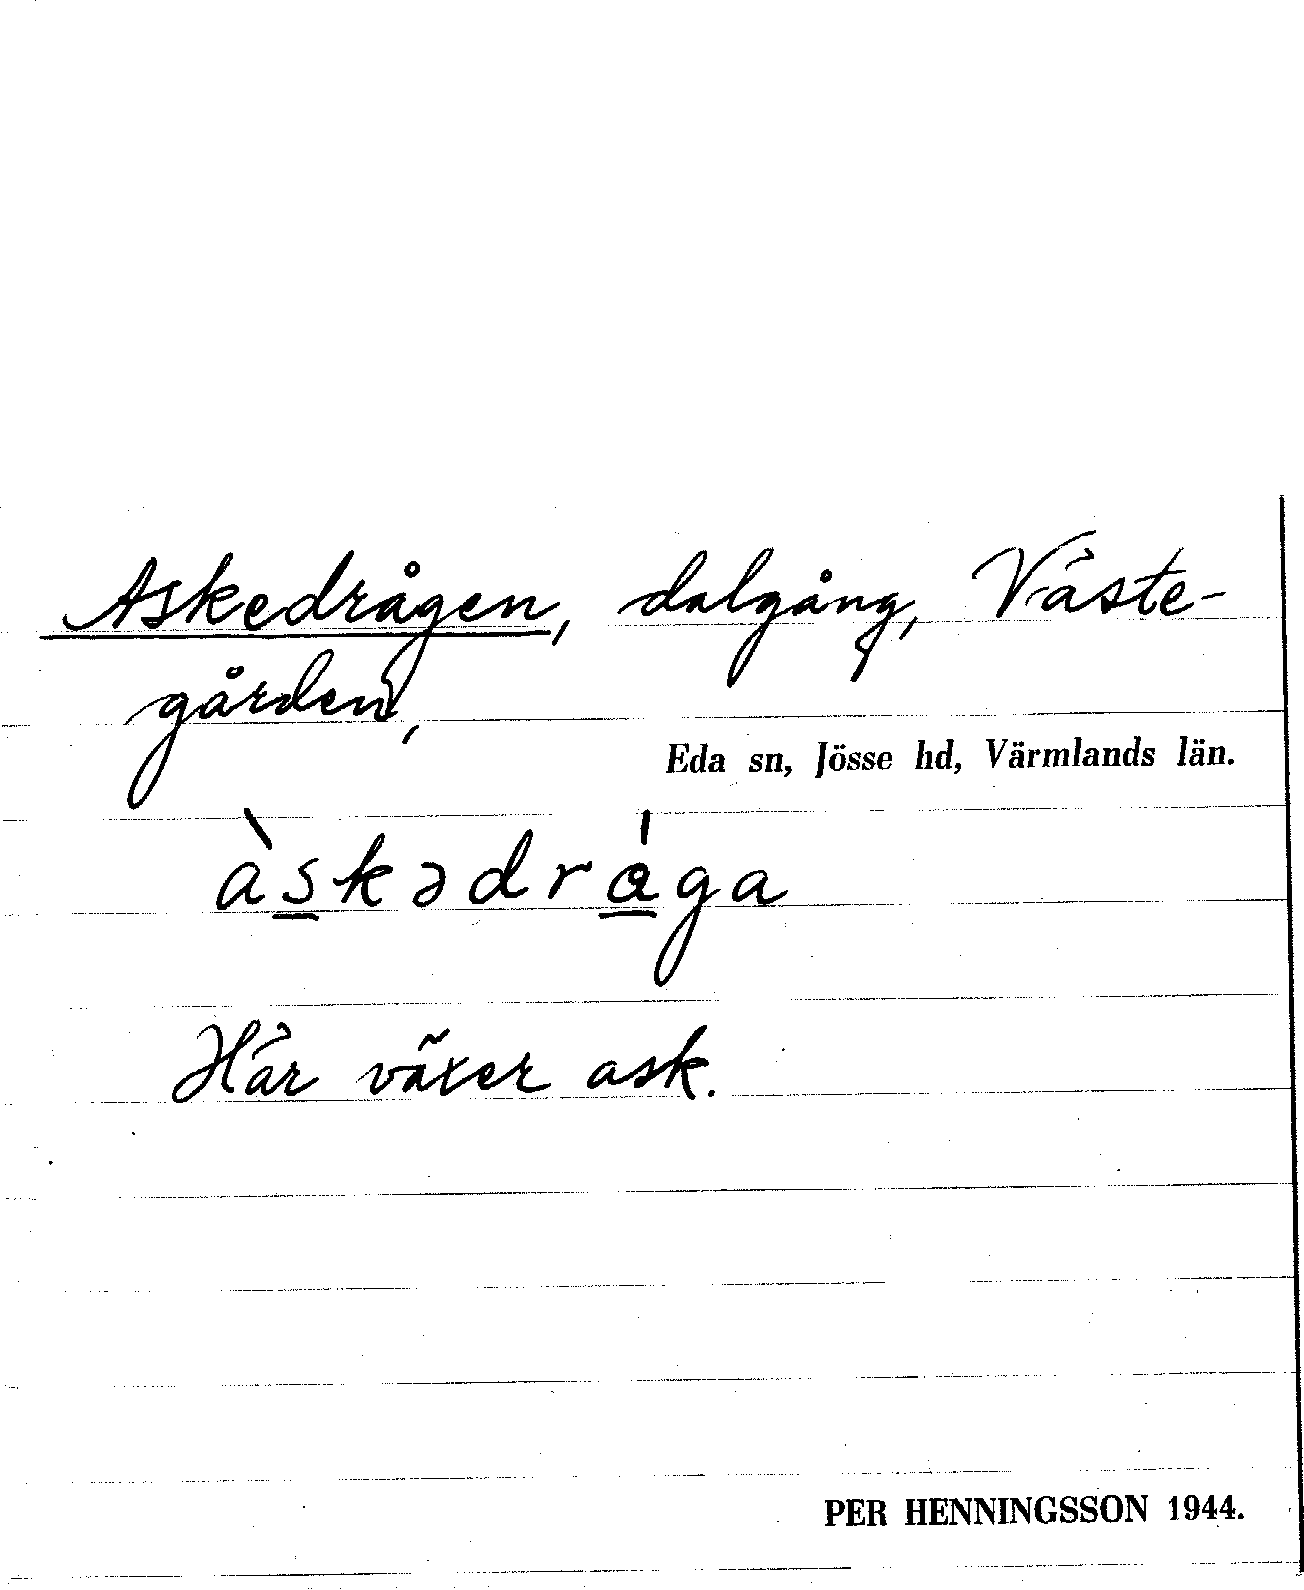 Askedrågen, dalgång, Väste-
gården,
Eda sn, Jösse hd, Värmlands län.
àskədrága
Här växer ask.
PER HENNINGSSON 1944.